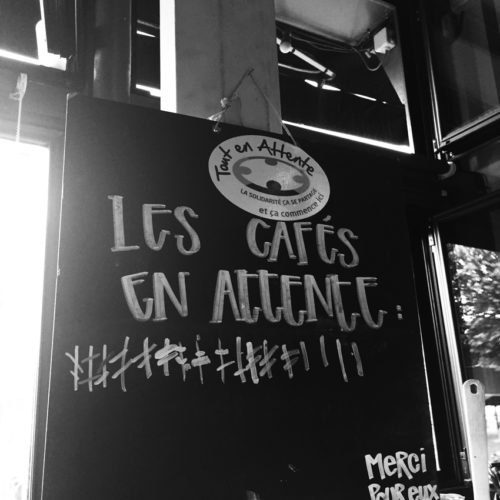 Tout en Attente
LA SOLIDARITÉ ÇA SE PARTAGE
et ça commence ici
LES CAFÉS
EN ATTENTE :
MERCI
POUR EUX